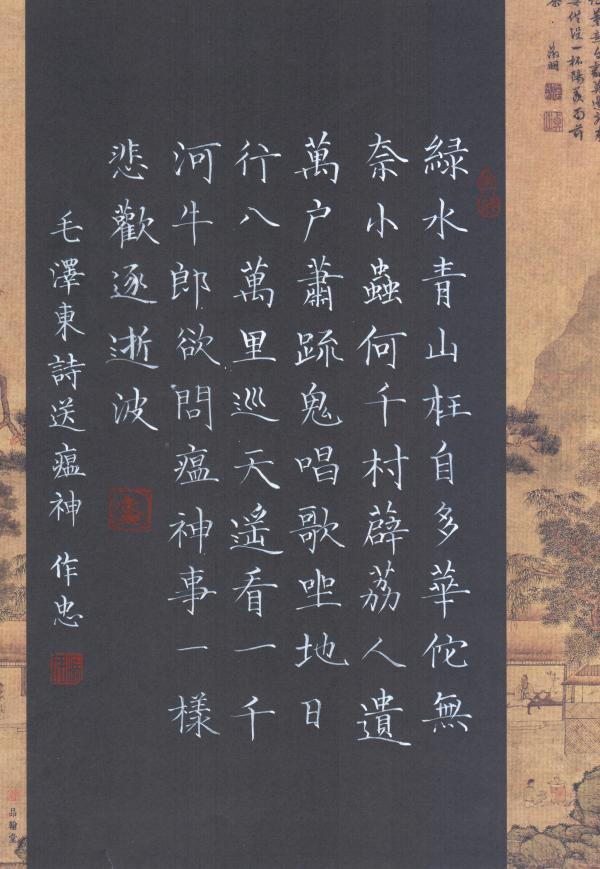 緑水青山枉自多華佗無
奈小蟲何千村薜荔人遺
萬户蕭疏鬼唱歌坐地日
行八萬里巡天遥看一千
河牛郎欲問瘟神事一樣
悲歡逐逝波
毛澤東詩送瘟神 作忠
品翰堂